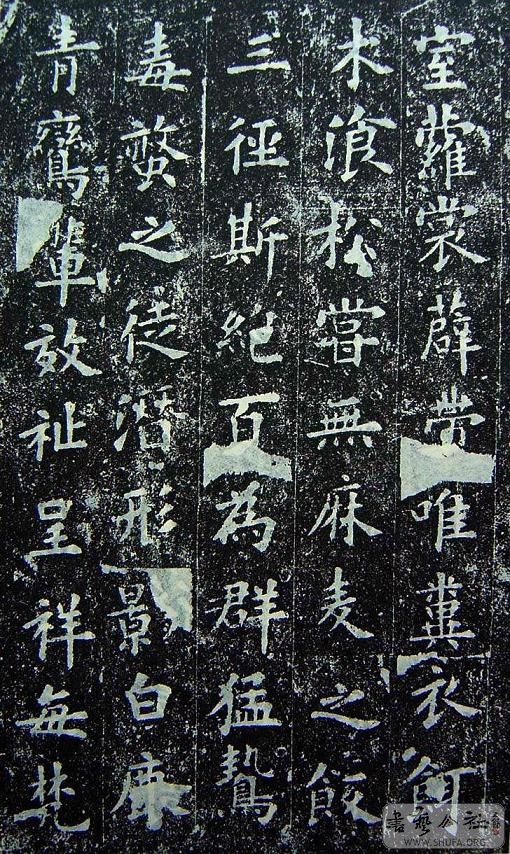 室蘿裳薜帶唯糞衣餌
木飡松嘗無麻麦之飯
三徑斯絕百為群猛鷙
毒螫之徒潛形影白鹿
青鸞輩效祉呈祥每梵
書藝公社
WWW.SHUFA.ORG